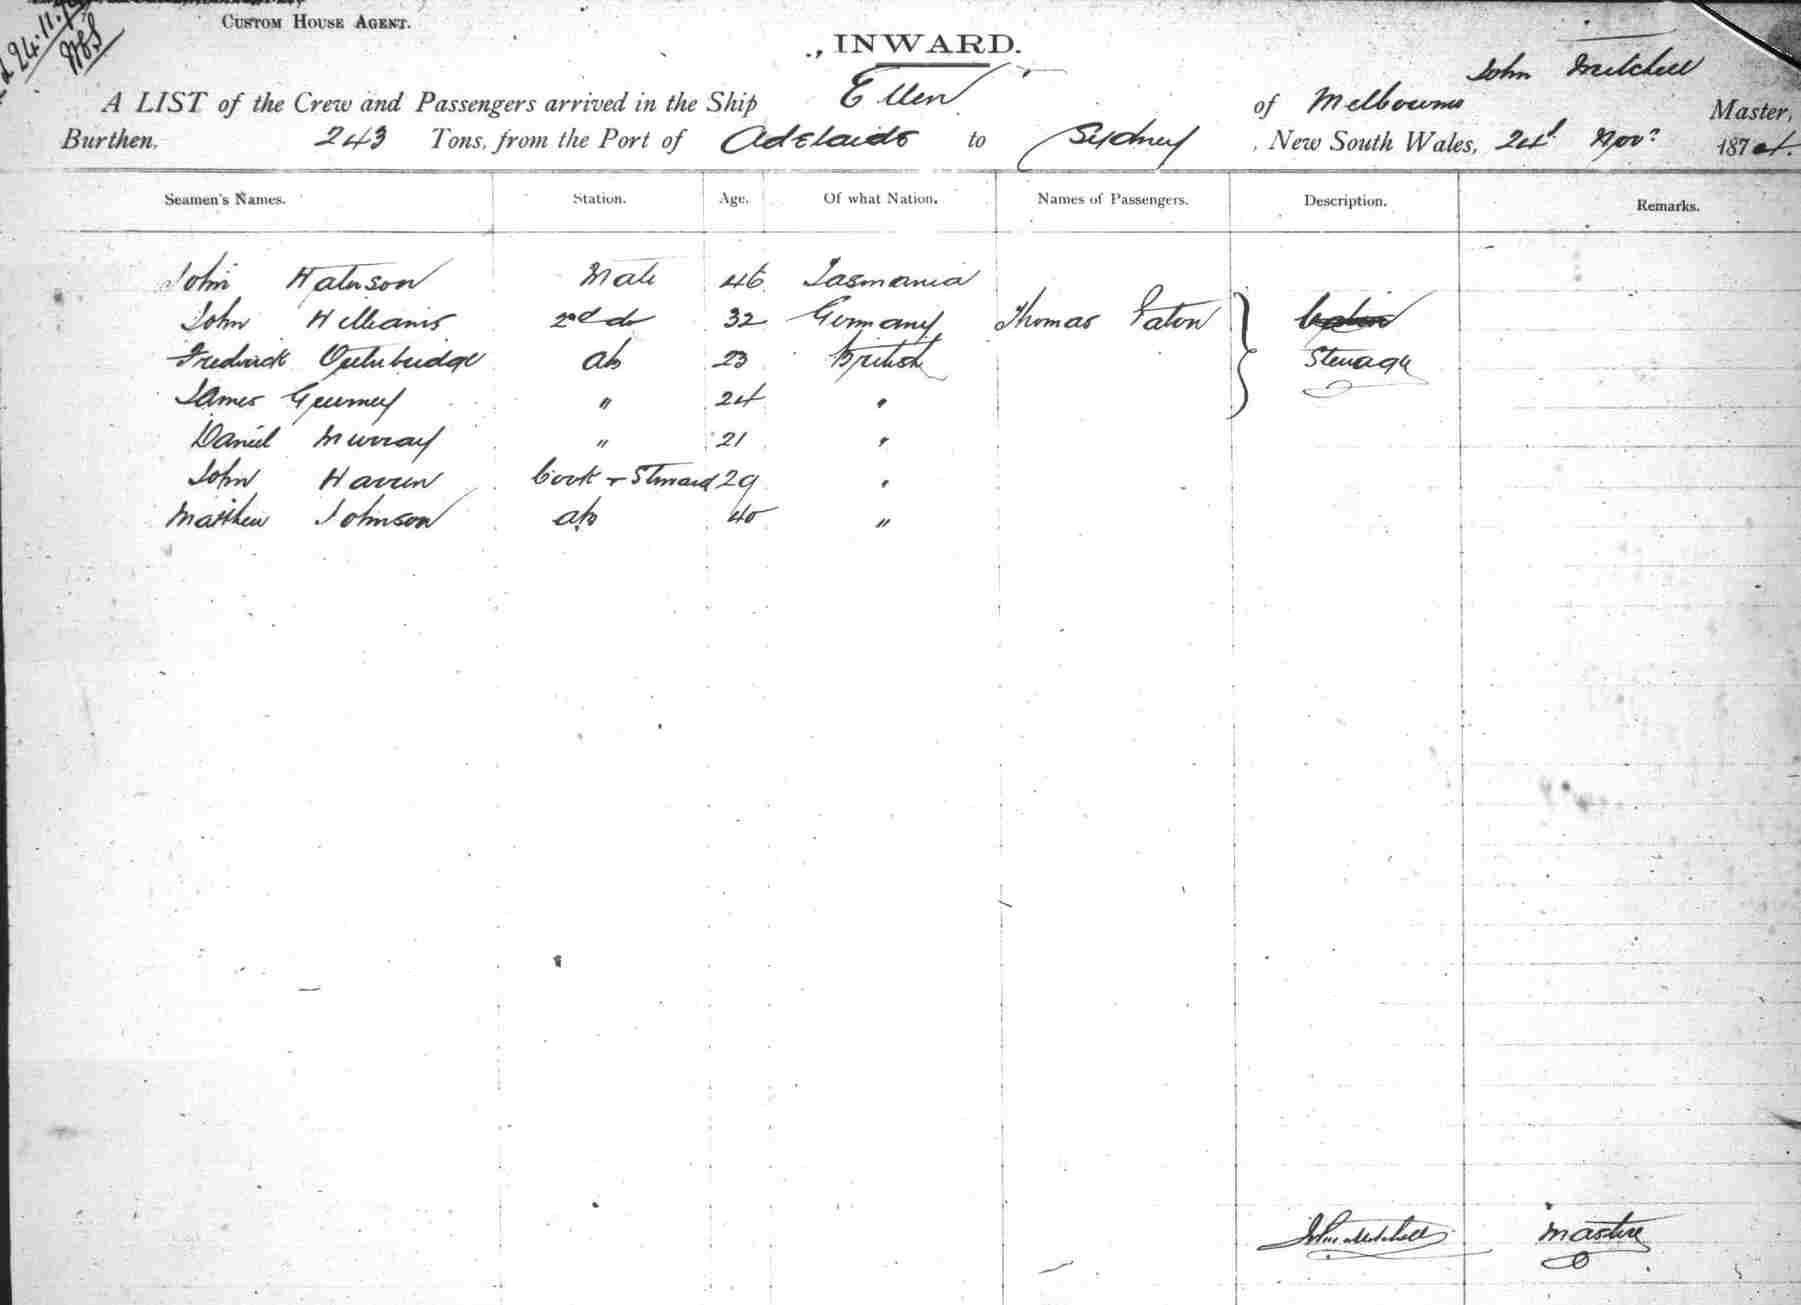 CUSTOM HOUSE AGENT.
24.11.
INWARD.
John Mitchell
A LIST of the Crew and Passengers arrived in the Ship Ellen of Melbourne Master,
Burthen, 243 Tons, from the Port of Adelaide to Sydney, New South Wales, 24th Novr 1874.
Seamen's Names. Station. Age. Of what Nation. Names of Passengers. Description. Remarks.
John Mate 46 Tasmania
John Williams 2nd do 32 Germany Thomas Eaton Cabin
Frederick Outerbridge ab 23 British Steerage
James Gurney " 24 "
Daniel Murray " 21 "
John Cook + Steward 29 "
Matthew Johnson ab 40 "
John Mitchell Master